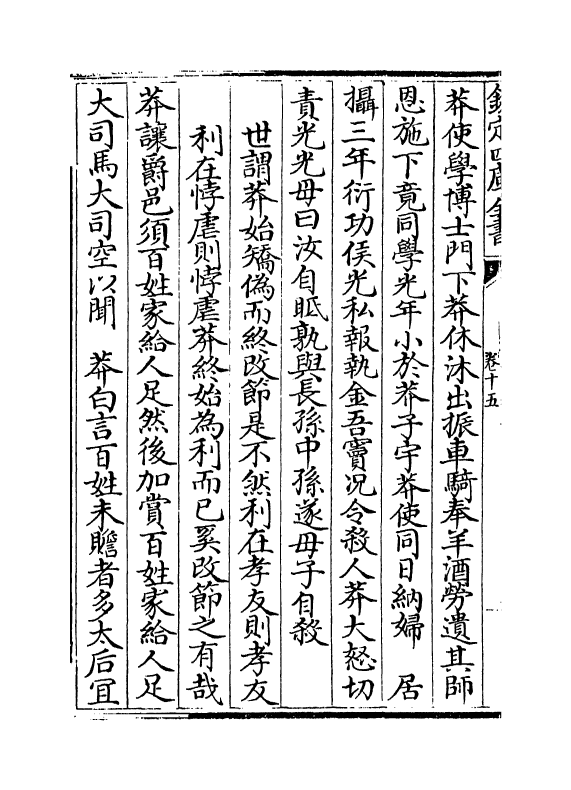 欽定四庫全書
卷十五
莽使學博士門下莽休沐出振車騎奉羊酒勞遺其師
恩施下竟同學光年小於莽子宇莽使同日納婦　居
攝三年衍功侯光私報執金吾竇况令殺人莽大怒切
責光光母曰汝自眡孰與長孫中孫遂母子自殺
世謂莽始矯偽而終改節是不然利在孝友則孝友
利在悖虐則悖虐莽終始為利而已奚改節之有哉
莽讓爵邑須百姓家給人足然後加賞百姓家給人足
大司馬大司空以聞　莽白言百姓未贍者多太后宜